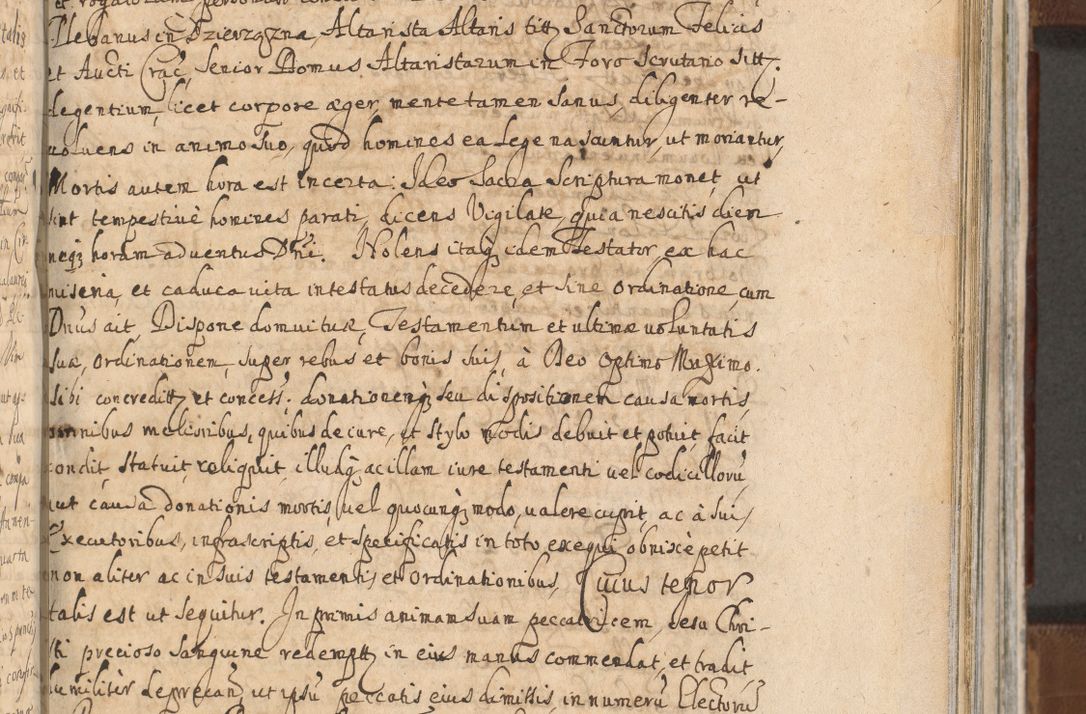 Plebanus in Dzierzązna, Altarista Altaris titt; Sanctorum Felicis
et Aucti Crac: Senior Domus Altaristarum in Foro Scrutario Sitt:
degentium, licet corpore æger, mente tamen sanus, diligenter re-
uoluens in animo suo, quod homines ea Lege nascuntur, ut moriantur,
Mortis autem hora est incerta: Ideo Sacra Scriptura monet, ut
sint tempestiuè homines parati, dicens Vigilate, quia nescitis diem
neq; horam aduentus Dñi. Nolens itaq; idem Testator, ex hac
misera, et caduca uita intestatus decedere, et sine ordinatione, cum
Dnus ait, Dispone domui tuæ, Testamentum et ultimæ uoluntatis
suæ, ordinationem, super rebus et bonis suis, à Deo Optimo Maximo.
sibi concreditt; et concess: donationemq; seu dispositionem causa mortis,
omnibus melioribus, quibus de iure, et stylo modis debuit et potuit, facit
condit, statuit, reliquit, illudq; ac illam iure testamenti uel codicillorũ,
aut causa donationis mortis, uel quocunq; modo, ualere cupit, ac à suis
Executoribus, infrascriptis, et specificatis in toto exequi obnixè petit
non aliter ac in suis testamentis et ordinationibus, Cuius tenor
talis est ut sequitur. In primis animam suam peccatricem, Jesu Chri-
sti precioso sanguine redemptt; in eius manus commendat, et tradit,
humiliter deprecan: ut ipsũ peccatis eius dimissis, in numerũ Electorũ